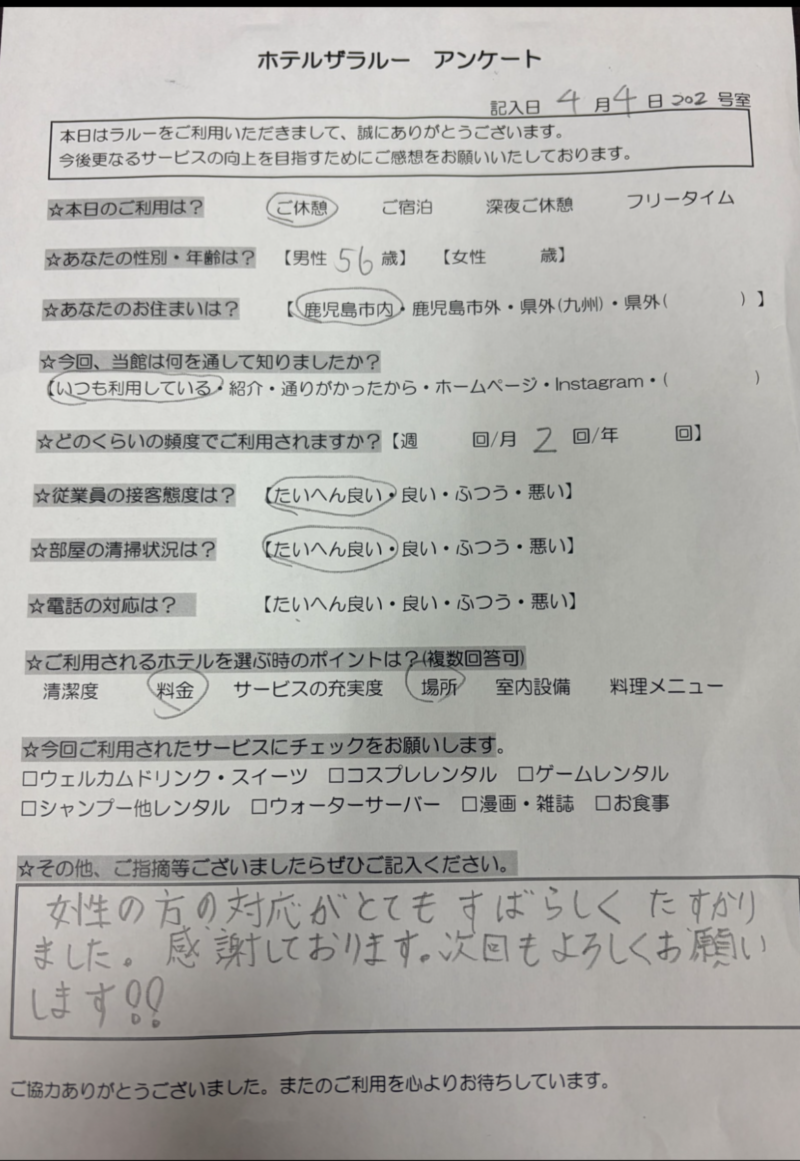 ホテルザラルー　アンケート
記入日 4 月 4 日 202 号室
本日はラルーをご利用いただきまして、誠にありがとうございます。
今後更なるサービスの向上を目指すためにご感想をお願いいたしております。
☆本日のご利用は?　ご休憩　ご宿泊　深夜ご休憩　フリータイム
☆あなたの性別・年齢は?　【男性 56 歳】　【女性　　歳】
☆あなたのお住まいは?　【鹿児島市内・鹿児島市外・県外(九州)・県外(　　　)】
☆今回、当館は何を通して知りましたか?
【いつも利用している・紹介・通りがかったから・ホームページ・Instagram・(　　　　)
☆どのくらいの頻度でご利用されますか?【週　　回/月 2 回/年　　回】
☆従業員の接客態度は?　【たいへん良い・良い・ふつう・悪い】
☆部屋の清掃状況は?　【たいへん良い・良い・ふつう・悪い】
☆電話の対応は?　【たいへん良い・良い・ふつう・悪い】
☆ご利用されるホテルを選ぶ時のポイントは?(複数回答可)
清潔度　料金　サービスの充実度　場所　室内設備　料理メニュー
☆今回ご利用されたサービスにチェックをお願いします。
□ウェルカムドリンク・スイーツ　□コスプレレンタル　□ゲームレンタル
□シャンプー他レンタル　□ウォーターサーバー　□漫画・雑誌　□お食事
☆その他、ご指摘等ございましたらぜひご記入ください。
女性の方の対応がとてもすばらしくたすかり
ました。感謝しております。次回もよろしくお願い
します!!
ご協力ありがとうございました。またのご利用を心よりお待ちしています。